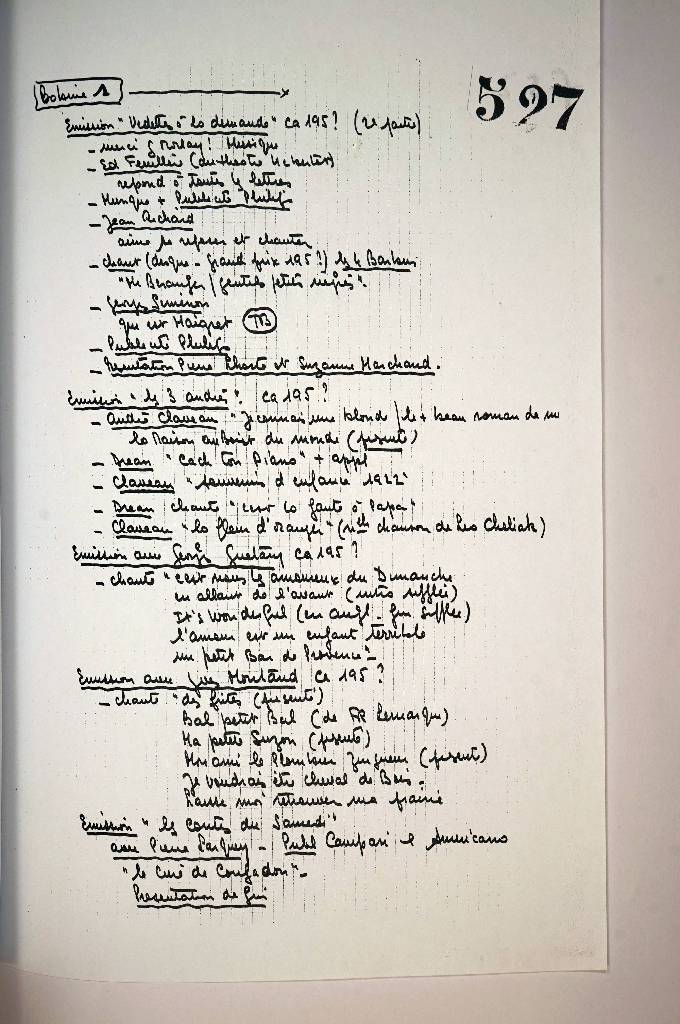 Bobine 1
597
Emission "Vedettes à la demande" ca 195? (2e partie)
- merci G Morlay! Musique
- Ed Feuillère (du theatre
répond à toutes les lettres
- Musique + Publicité Philips
- Jean Richard
aime se reposer et chanter
- chant (disque - grand prix 195?) les 4 Barbus
"Mr Beranger / gentils petits nègres".
- Georges Simenon
qui est Maigret (TB)
- Publicité Philips
- Presentation Pierre et Suzanne Marchand.
Emission "les 3 andrés". ca 195?
- André Claveau "Je connais une blonde / le + beau roman de
la Maison au Bout du monde (présenté)
- Dréan "Cach' ton Piano" + appl
- Claveau "souvenirs d'enfance 1922"
- Dréan chante "c'est la faute à Papa"
- Claveau "la fleur d'oranger" (nlle chanson de Leo Cheliak)
Emission avec Georges Guétary ca 195?
- chante "c'est nous les amoureux du Dimanche
en allant de l'avant (intro sifflée)
It's wonderful (en angl. fin sifflée)
l'amour est un enfant terrible
un petit Bar de Provence" -
Emission avec Yves Montand ca 195?
- chante "des fêtes (présenté)
Bal petit Bal (de FR Lemarque)
Ma petite Suzon (présenté)
Mon ami le Plombier Zingueur (présenté)
Je voudrais être cheval de Bois.
Laisse moi retrouver ma prairie
Emission "les contes du Samedi"
avec Pierre Larquey - Publ Campari l'Americano
"le curé de Cucugnan" -
Presentation de